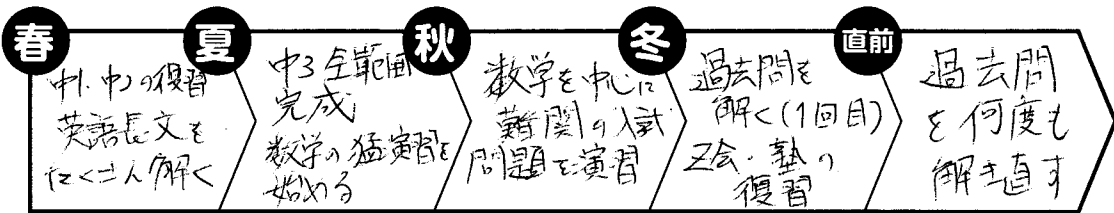 春
中1.中2の復習
英語長文を
たくさん解く
夏
中3全範囲
完成
数学の猛演習を
始める
秋
数学を中心に
難関の入試
問題を演習
冬
過去問を
解く(1回目)
Z会・塾の
復習
直前
過去問
を何度も
解き直す